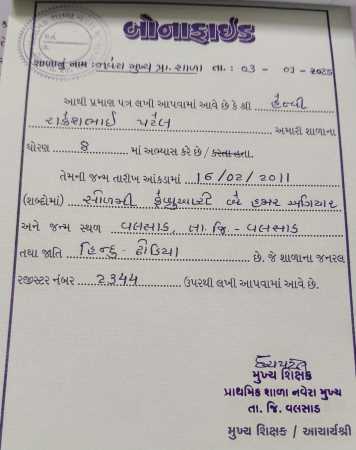 બોનાફાઇડ
શાળાનું નામ : નવેરા મુખ્ય પ્રા. શાળા તા. : 03 -
આથી પ્રમાણ પત્ર લખી આપવામાં આવે છે કે શ્રી
રાકેશભાઈ પટેલ અમારી શાળાના
ધોરણ 8 માં અભ્યાસ કરે છે / કરતા હતા.
તેમની જન્મ તારીખ આંકડામાં 16/02/2011
(શબ્દોમાં) સોળમી ફેબ્રુઆરી બે હજાર અગિયાર
અને જન્મ સ્થળ વલસાડ, તા. જિ. - વલસાડ
તથા જાતિ હિન્દુ - ઢોડિયા છે. જે શાળાના જનરલ
રજીસ્ટર નંબર 2344 ઉપરથી લખી આપવામાં આવે છે.
મુખ્ય શિક્ષક
પ્રાથમિક શાળા નવેરા મુખ્ય
તા. જિ. વલસાડ
મુખ્ય શિક્ષક / આચાર્યશ્રી